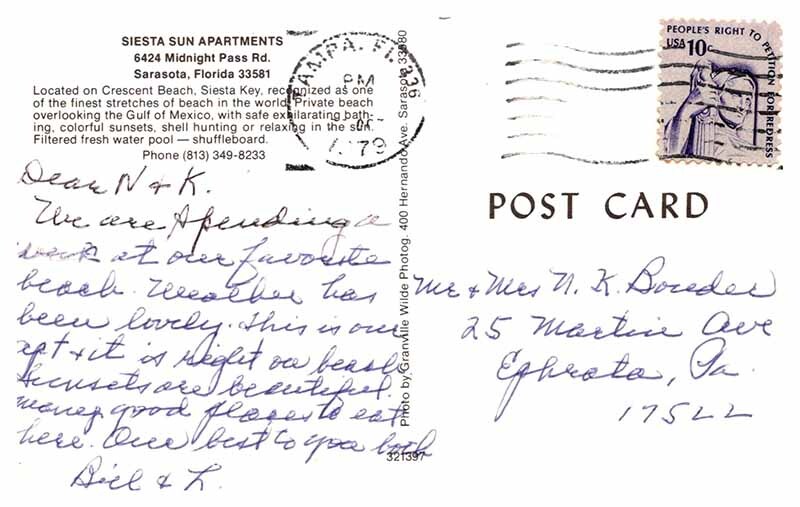 SIESTA SUN APARTMENTS
6424 Midnight Pass Rd.
Sarasota, Florida 33581
Located on Crescent Beach, Siesta Key, recognized as one
of the finest stretches of beach in the world. Private beach
overlooking the Gulf of Mexico, with safe exilarating bath-
ing, colorful sunsets, shell hunting or relaxing in the sun.
Filtered fresh water pool — shuffleboard.
Phone (813) 349-8233
Dear N & K.
We are spending a
week at our favorite
beach. Weather has
been lovely. This is our
apt & it is right on beach
Sunsets are beautiful.
Many good places to eat
here. Our best to you both
Bill & L.
Photo by Granville Wilde Photog. 400 Hernando Ave. Sarasota 33580
321397
TAMPA, FL 336
PM
1979
PEOPLE'S RIGHT TO PETITION FOR REDRESS
USA 10c
POST CARD
Mr & Mrs N. K. Bowder
25 Martin Ave
Ephrata, Pa.
17522